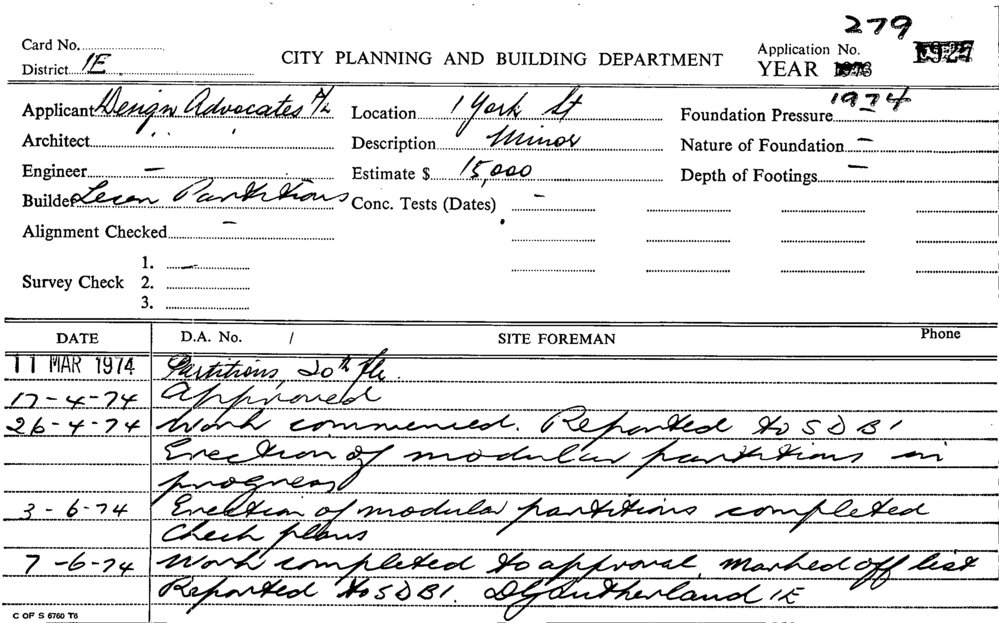 279
Card No.
District 1E.
CITY PLANNING AND BUILDING DEPARTMENT
Application No.
YEAR
1974
Applicant Design Advocates P/L
Location 1 York St
Foundation Pressure –
Architect " "
Description Minor
Nature of Foundation –
Engineer –
Estimate $ 15,000
Depth of Footings –
Builder Partitions
Conc. Tests (Dates) –
Alignment Checked –
Survey Check
1. –
2.
3.
DATE D.A. No. / SITE FOREMAN Phone
11 MAR 1974 Partitions, 20th flr.
17-4-74 Approved
26-4-74 Work commenced. Reported to SDBI
Erection of modular partitions in
progress
3-6-74 Erection of modular partitions completed
Check plans
7-6-74 Work completed to approval. marked off list
Reported to SDBI. DG Sutherland 1E
C OF S 6760 T6